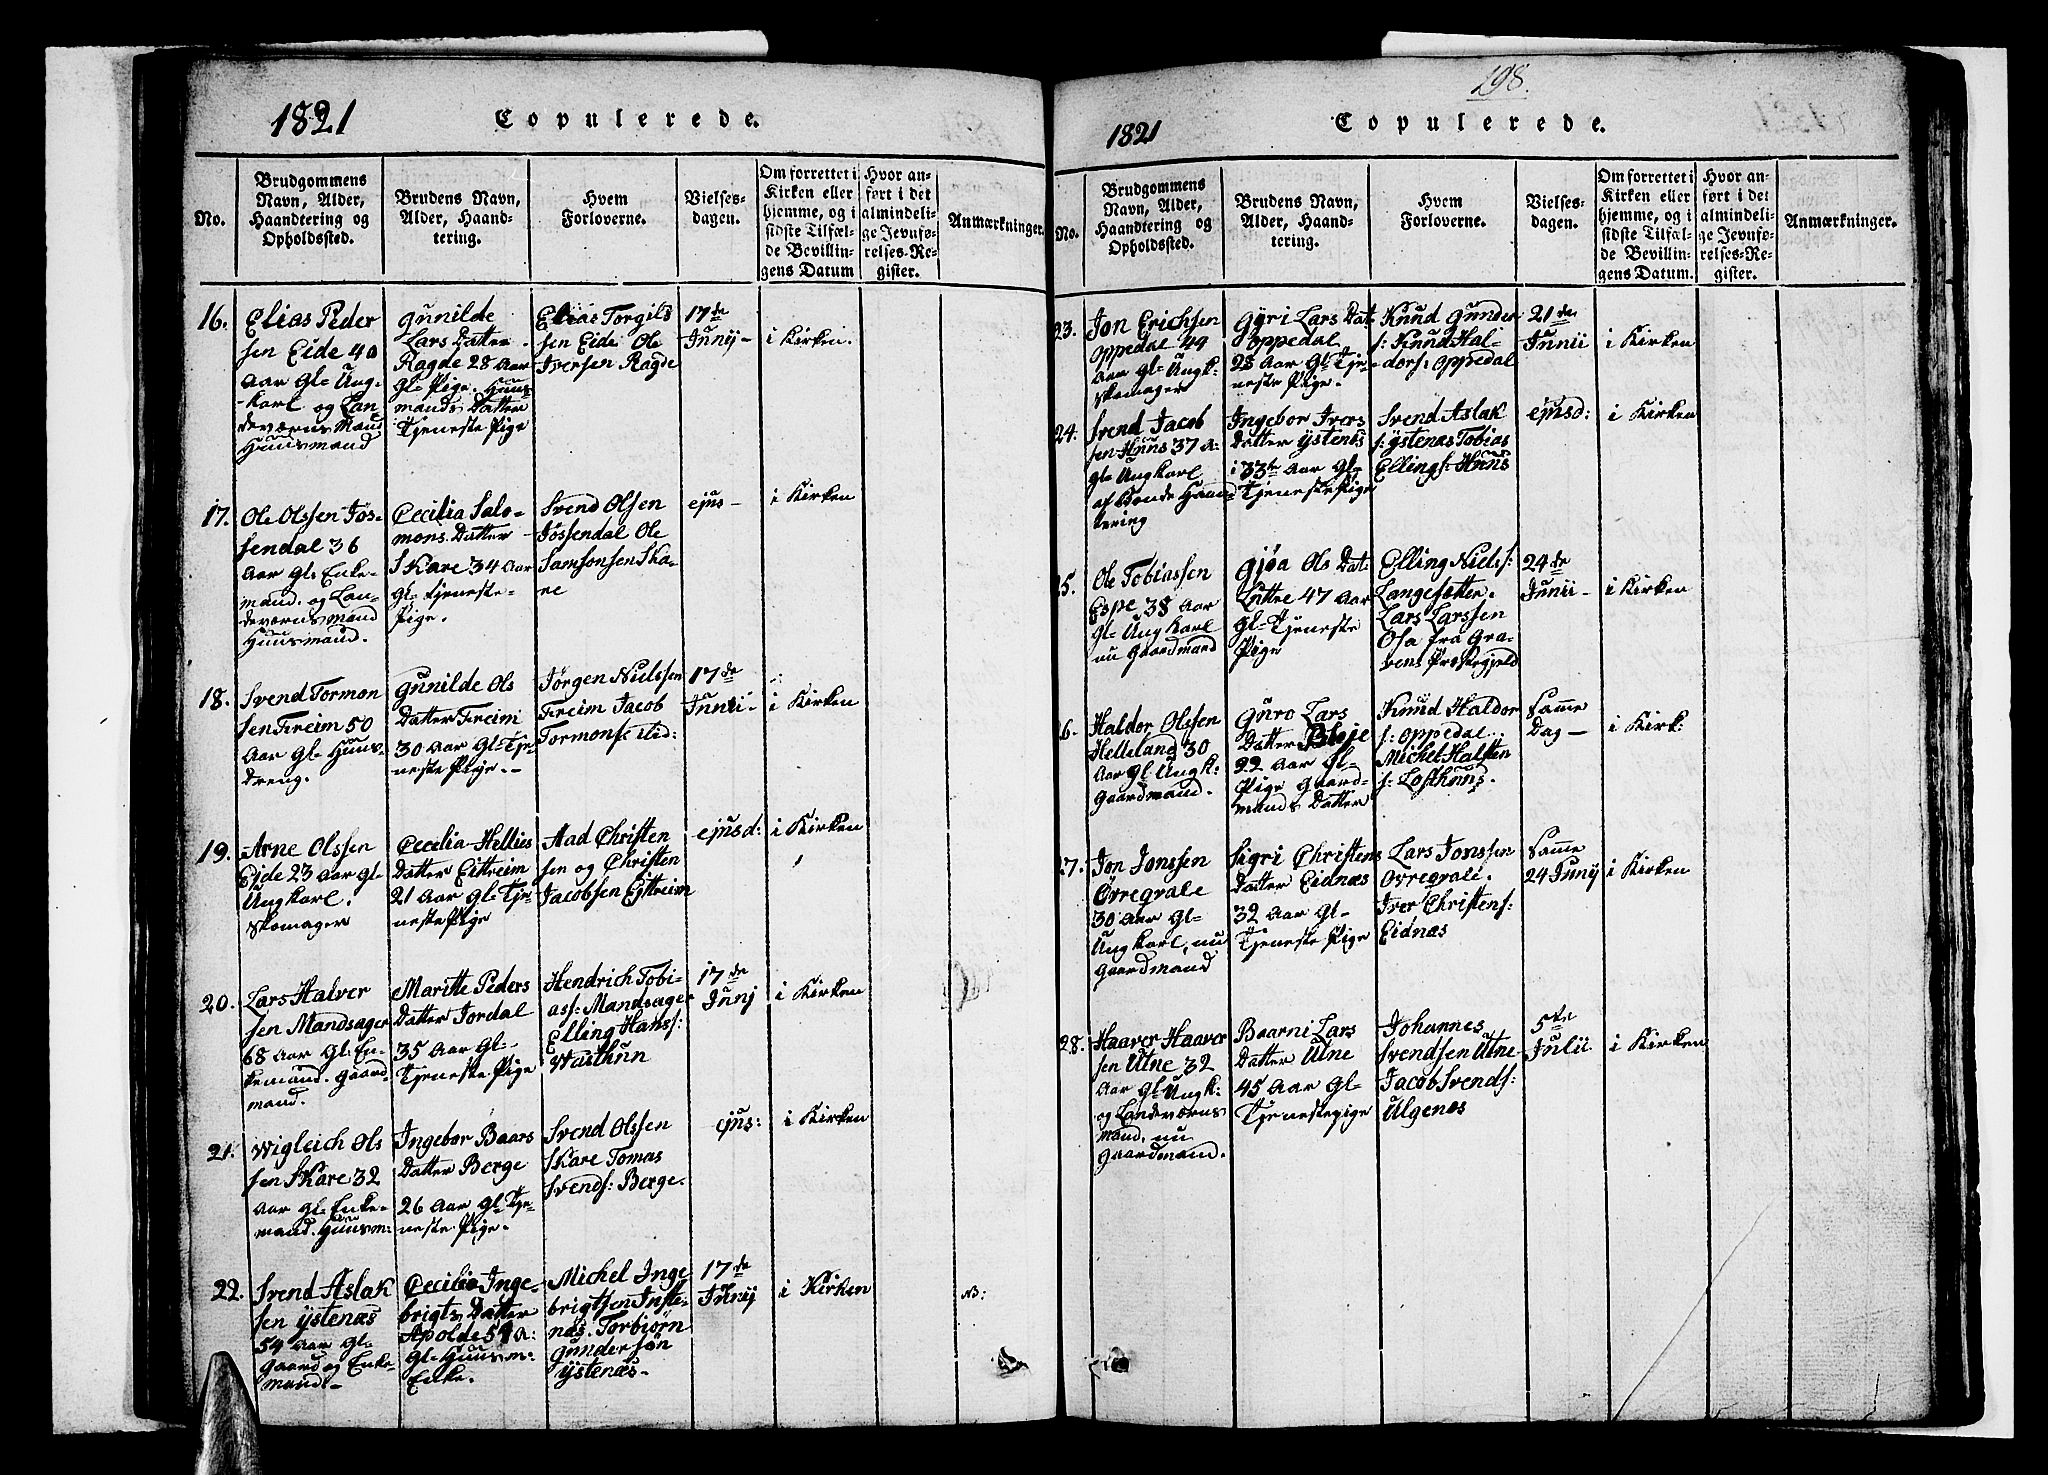 1821
Copulerede.
No.
Brudgommens
Navn, Alder,
Haandtering og
Opholdssted.
Brudens Navn,
Alder, Haand-
tering.
Hvem
Forloverne.
Vielses-
dagen.
Om forrettet i
Kirken eller
hjemme, og i
sidste Tilfæl-
de Bevillin-
gens Datum
Hvor an-
ført i det
almindeli-
ge Jevnfø-
relses-Re-
gister.
Anmærkninger.
16.
Elias Peder
sen Eide 40
Aar Gl= Ung-
-karl og Lan-
deværns Mand
Huusmand
Gunilde
Lars Datter
Ragde 28 Aar
Gl= Pige. Huus-
mands Datter
Tjeneste Pige
Elias Torgils
sen Eide Ole
Iversen Ragde
17de
Junij-
i Kirken.
17.
Ole Olssen Jøs-
sendal 36
Aar Gl: Enke-
mand. og Lan-
deværnsmand
Huusmand.
Cecilia Salo-
mons. Datter
Skare 34 Aar
Gl= Tjeneste-
Pige.
Svend Olsen
Jøssendal Ole
Samsonsen Ska-
re
ejus-
i Kirken
18.
Svend Tormon
sen Freim 50
Aar Gl= Huus-
Dreng.
Gunilde Ols
Datter Freim
30 Aar Gl= Tje-
neste Pige.-
Jørgen Nielssen
Freim Jacob
Tormons: ibid:
17de
Junii-
i Kirken
19.
Arne Olssen
Eide 23 Aar Gl=
Ungkarl.
Skomager
Cecilia Hellies
Datter Eittreim
21 Aar Gl= Tje-
neste Pige
Aad Christen
sen og Christen
Jacobsen Eittreim
ejusd:
i Kirken
20.
Lars Halver
sen Mandsager
68 Aar Gl: En-
kemand. Gaard-
mand.
Maritte Peders
Datter Jordal
35 Aar Gl-
Tjeneste Pige
Hendrich Tobi-
ass: Mandsager
Elling Hanss:
Wasthun
17de
Junj
i Kirken
21.
Wigleich Ols
sen Skare 32
Aar Gl= Enke-
mand. Huusm:
Ingebor Baars
Datter Berge
26 Aar Gl= Tje-
neste Pige.
Svend Olssen
Skare Tomas
Svends: Berge.
ejus:
i Kirken
22.
Svend Aslak
sen Ystenæs
54 Aar Gl=
Gaard og Enke-
mand-
Cecilia Inge-
brigts Datter
Apolde 51 A:
Gl= Huusm:
Enke.
Michel Inge
brigtsen Inste-
næs. Torbiørn
Gundersøn
Ystenæs-
17de
Junij
i Kirken
NB:
198.
1821
Copulerede.
No.
Brudgommens
Navn, Alder,
Haandtering og
Opholdssted.
Brudens Navn,
Alder, Haand-
tering.
Hvem
Forloverne.
Vielses-
dagen.
Om forrettet i
Kirken eller
hjemme, og i
sidste Tilfæl-
de Bevillin-
gens Datum.
Hvor an-
ført i det
almindeli-
ge Jevnfø-
relses-Re-
gister.
Anmærkninger.
23.
Jon Erichsen
Oppedal 49
Aar Gl= Ungk:
Skomager
Gyri Lars Dat-
Oppedal
28 Aar Gl= Tje-
neste Pige.
Knud Gunder
s: Knud Hal-
dors: Oppedal
21de
Junii
i Kirken
24.
Svend Jacob
sen Huus 37 A:
Gl= Ungkarl
af Bonde Haand-
tering
Ingebor Ivers
Datter Ystenæs
i 33te Aar Gl=
Tjeneste Pige
Svend Aslak
s: Ystenæs Tobias
Ellings: Huus
ejusd:
i Kirken
25.
Ole Tobiassen
Espe 38 Aar
Gl= Ungkarl
nu Gaardmand
Gjøa Ols Dat-
Luttre 47 Aar
Gl= Tjeneste
Pige
Elling Niels:
Langesætter.
Lars Larssen
Osa fra Gra-
vens Præstegjeld
24de
Junii-
i Kirken
26.
Haldor Olssen
Helleland 30
Aar Gl. Ungk:
Gaardmand.
Guro Lars
Datter Bleje
22 Aar Gl=
Pige Gaard-
mands Datter
Knud Haldor
s: Oppedal.
Michel Halsten
s: Lofthuus.
Samme
Dag-
i Kirk:
27.
Jon Jonssen
Øvregvale
30 Aar Gl=
Ungkarl, nu
Gaardmand
Sigri Christens
Datter Eidnæs
32 Aar Gl-
Tjeneste Pige
Lars Jonssen
Ovregvale.
Iver Christens:
Eidnæs
Samme
24 Junij
i Kirken
28.
Haaver Haaver
sen Utne 32
Aar Gl= Ungk:
og Landeværns
mand. nu
Gaardmand.
Baarni Lars
Datter Utne
45 Aar Gl-
Tjenestepige
Johannes
Svendsen Utne
Jacob Svends:
Ulgenæs
5te
Julii
i Kirken